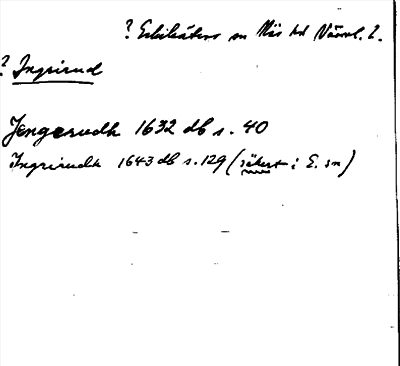 ? Eskilsäters sn Näs hd Värml. l.
? Ingrirud
Jengerudh 1632 db s. 40
Ingrirudh 1643 db s. 129 (säkert i E. sn)